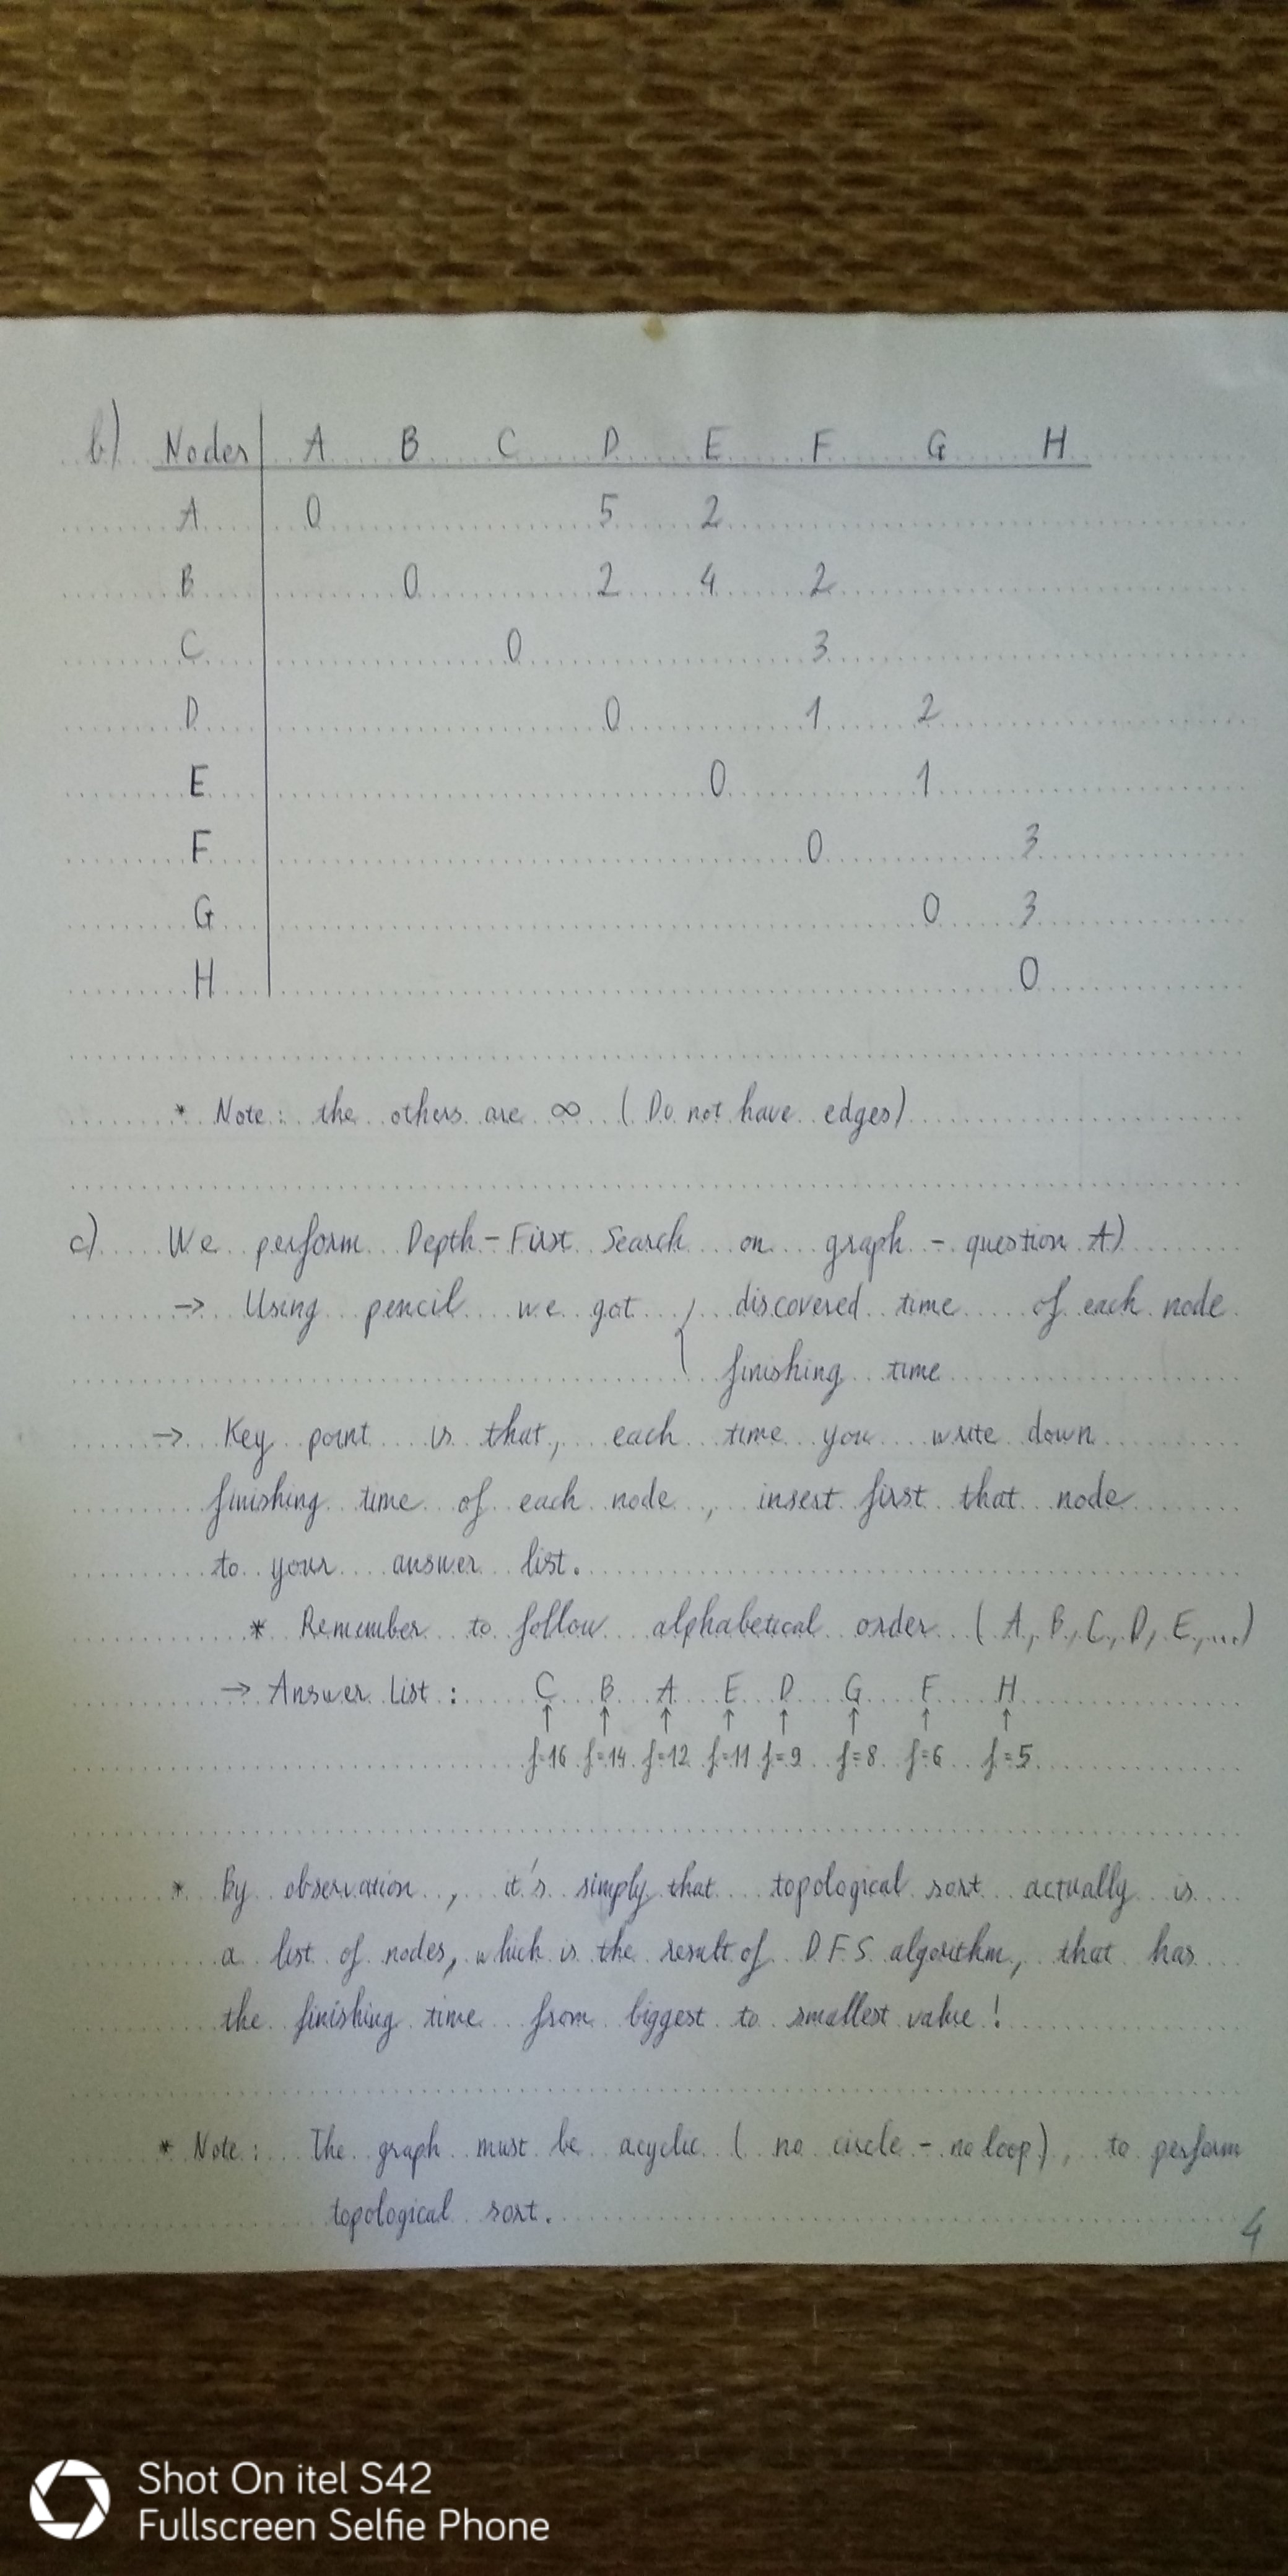 b) Nodes A B C D E F G H
A 0 5 2
B 0 2 4 2
C 0 3
D 0 1 2
E 0 1
F 0 3
G 0 3
H 0
* Note : the others are ∞ (Do not have edges)
c) We perform Depth - First Search on graph - question A)
→ Using pencil we got { discovered time of each node
finishing time
→ Key point is that, each time you write down
finishing time of each node , insert first that node
to your answer list.
* Remember to follow alphabetical order ( A, B, C, D, E, ...)
→ Answer List : C B A E D G F H
↑ ↑ ↑ ↑ ↑ ↑ ↑ ↑
f=16 f=14 f=12 f=11 f=9 f=8 f=6 f=5
* By observation , it's simply that topological sort actually is
a list of nodes, which is the result of DFS algorithm, that has
the finishing time from biggest to smallest value !
* Note : The graph must be acyclic ( no circle - no loop) , to perform
topological sort.
4
Shot On itel S42
Fullscreen Selfie Phone